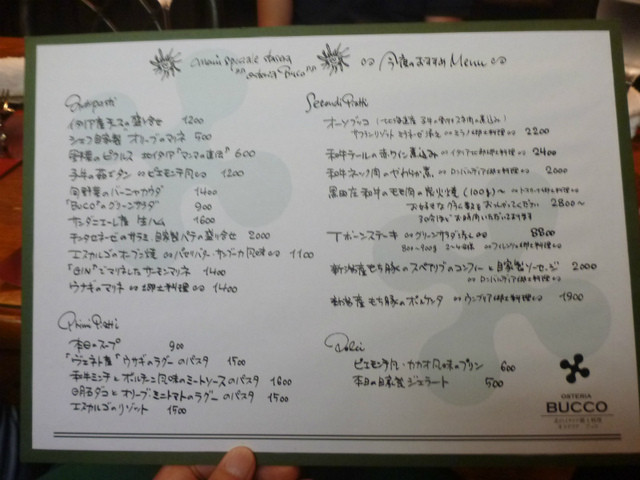 menu speciale
osteria Bucco
今夜のおすすめ Menu
Antipasti
イタリア産ハムの盛り合せ 1200
シェフ自家製 オリーブのマリネ 500
野菜のピクルス 北イタリア"マンマの直伝" 600
子牛の茹でタン ピエモンテ風 1200
旬野菜のバーニャカウダ 1400
"BUCCO"のグリーンサラダ 900
サンダニエーレ産 生ハム 1600
チンタセネーゼのサラミ、自家製パテの盛り合せ 2000
エスカルゴのオーブン焼 風味 1100
でマリネしたサーモンマリネ 1400
ウナギのマリネ 郷土料理 1400
Primi Piatti
本日のスープ 900
"ヴェネト産"ウサギのラグーのパスタ 1500
和牛ミンチとポルチーニ風味のミートソースのパスタ 1600
明石ダコとオリーブ、ミニトマトのラグーのパスタ 1500
エスカルゴのリゾット 1500
Secondi Piatti
オーソブッコ (北海道産 子牛の骨付きスネ肉の煮込み)
サフランリゾット ミラネーゼ添え ミラノ郷土料理 2200
和牛テールの赤ワイン煮込み イタリア 料理 2400
和牛ネック肉のやわらか煮 ロンバルディア郷土料理 2000
黒田庄和牛のモモ肉の炭火焼 (100g)〜 料理
お好きなグラム数をおっしゃってください 2800〜
30分ほどお時間いただいております
Tボーンステーキ グリーンサラダ添え 8800
800〜900g 2〜4名様 フィレンツェ郷土料理
新潟産もち豚のスペアリブのコンフィーと自家製ソーセージ 2000
ロンバルディア郷土料理
新潟産もち豚のポルケッタ ウンブリア郷土料理 1900
Dolci
ピエモンテ風・カカオ風味のプリン 600
本日の自家製ジェラート 500
OSTERIA
BUCCO